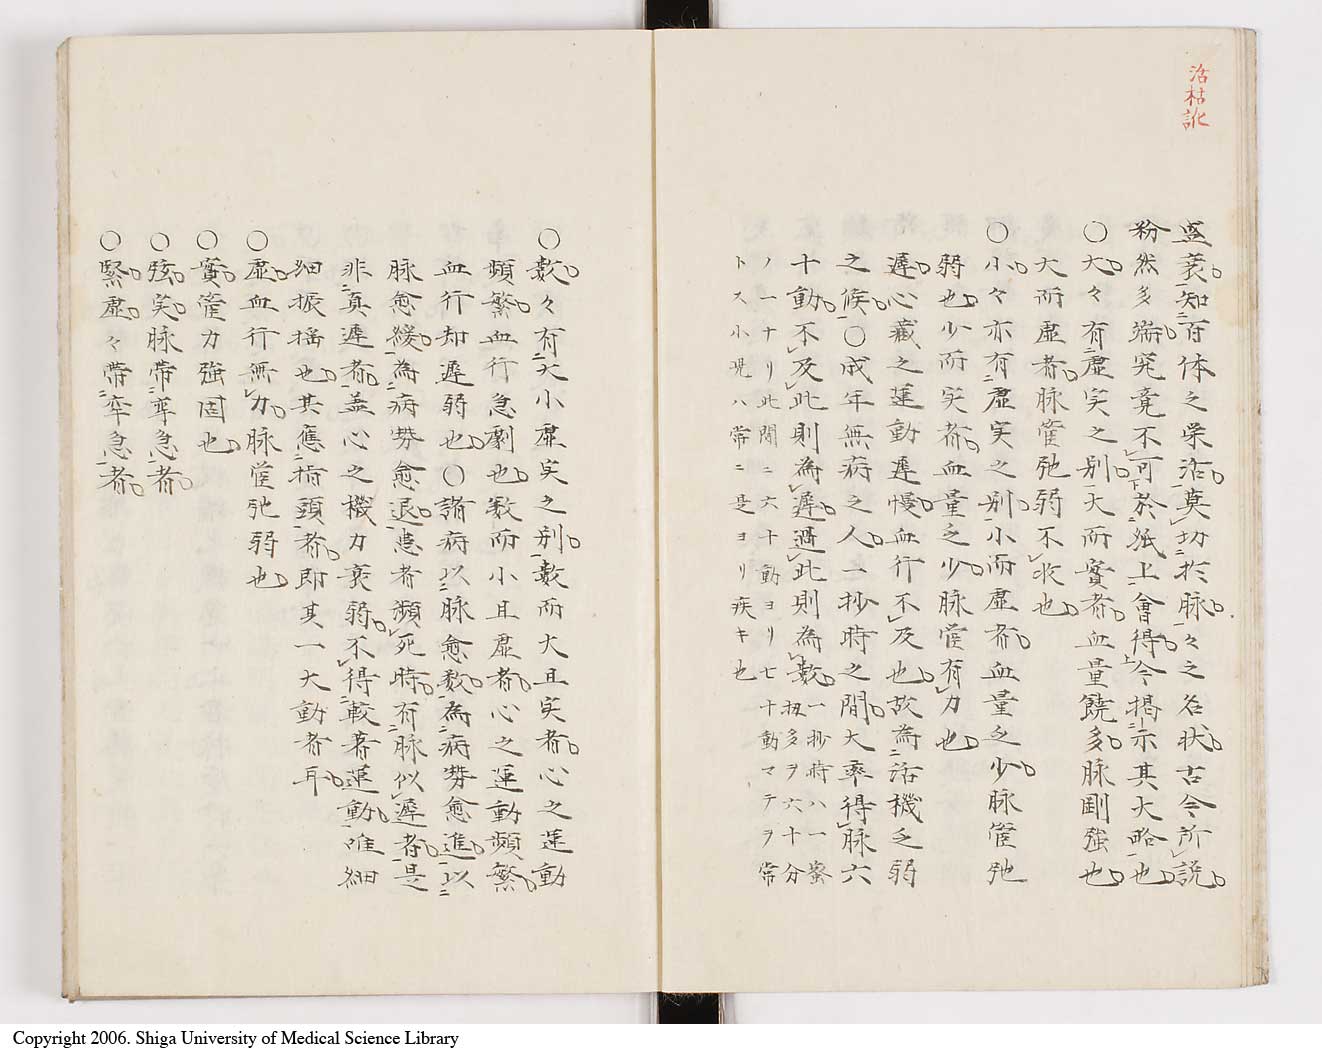 活枯訛
盛衰知百体之栄活莫切於脉々之名状古今所説
粉然多端究竟不可於紙上會得今掲示其大略也
○大々有虚実之別大而實者血量饒多脉剛強也
大而虚者脉管弛弱不收也
○小々亦有虚実之別小而虚者血量乏少脉管弛
弱也少而実者血量乏少脉管有力也
遲心藏之運動遲慢血行不及也故為活機乏弱
之候○成年無病之人一抄時之間大率得脉六
十動不及此則為遲過此則為數一抄時ハ一蜜
扨多ヲ六十分
ノ一ナリ此間ニ六十動ヨリ七十動マテヲ常
トス小児ハ常ニ是ヨリ疾キ也
○數々有大小虚実之別數而大且実者心之運動
頻繁血行急劇也数而小且虚者心之運動頻繁
血行却遲弱也○諸病以脉愈数為病勢愈進以
脉愈緩為病勢愈退患者瀕死時有脉似遲者是
非真遲者盖心之機力衰弱不得較著運動唯細
細振揺也其應指頭者即其一大動者耳
○虚血行無力脉管弛弱也
○實管力強固也
○弦実脉帶牽急者
○緊虚々帶牽急者
Copyright 2006. Shiga University of Medical Science Library